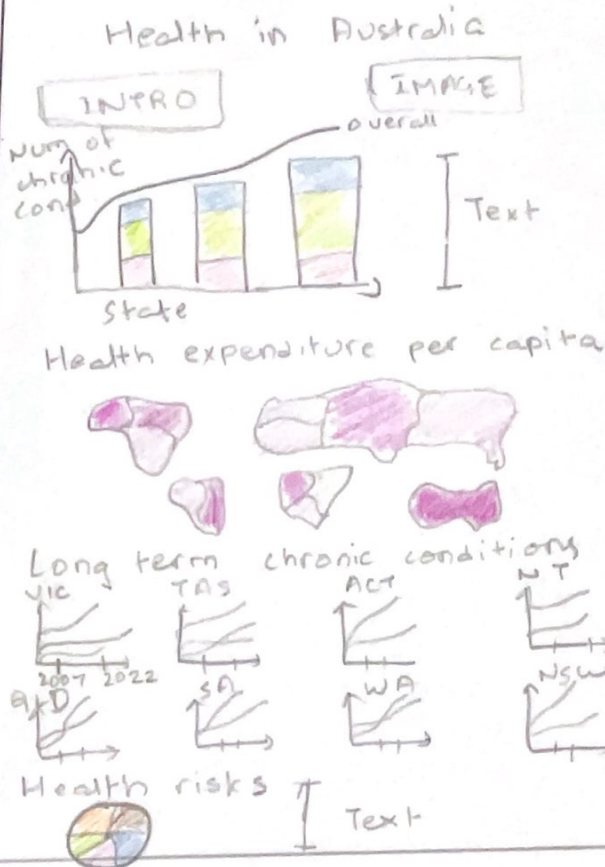 Health in Australia
INTRO
IMAGE
Num of
chronic
cond
overall
Text
State
Health expenditure per capita
Long term chronic conditions
VIC TAS ACT NT
2007 2022
QLD SA WA NSW
Health risks
Text